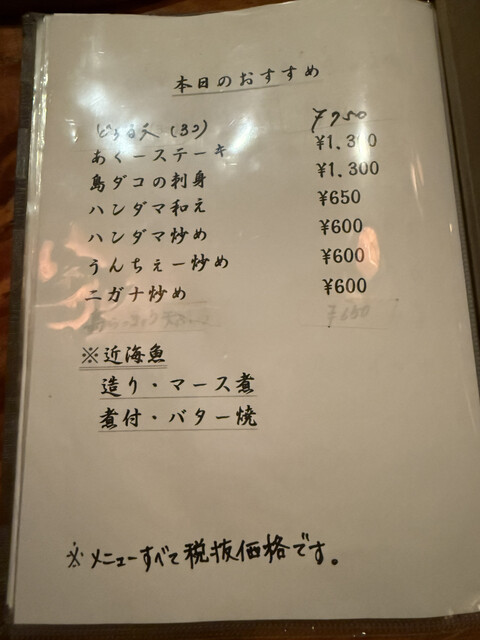 本日のおすすめ
天 (3コ) ¥750
あぐーステーキ ¥1.300
島ダコの刺身 ¥1.300
ハンダマ和え ¥650
ハンダマ炒め ¥600
うんちぇー炒め ¥600
ニガナ炒め ¥600
¥650
※近海魚
造り・マース煮
煮付・バター焼
※メニューすべて税抜価格です。